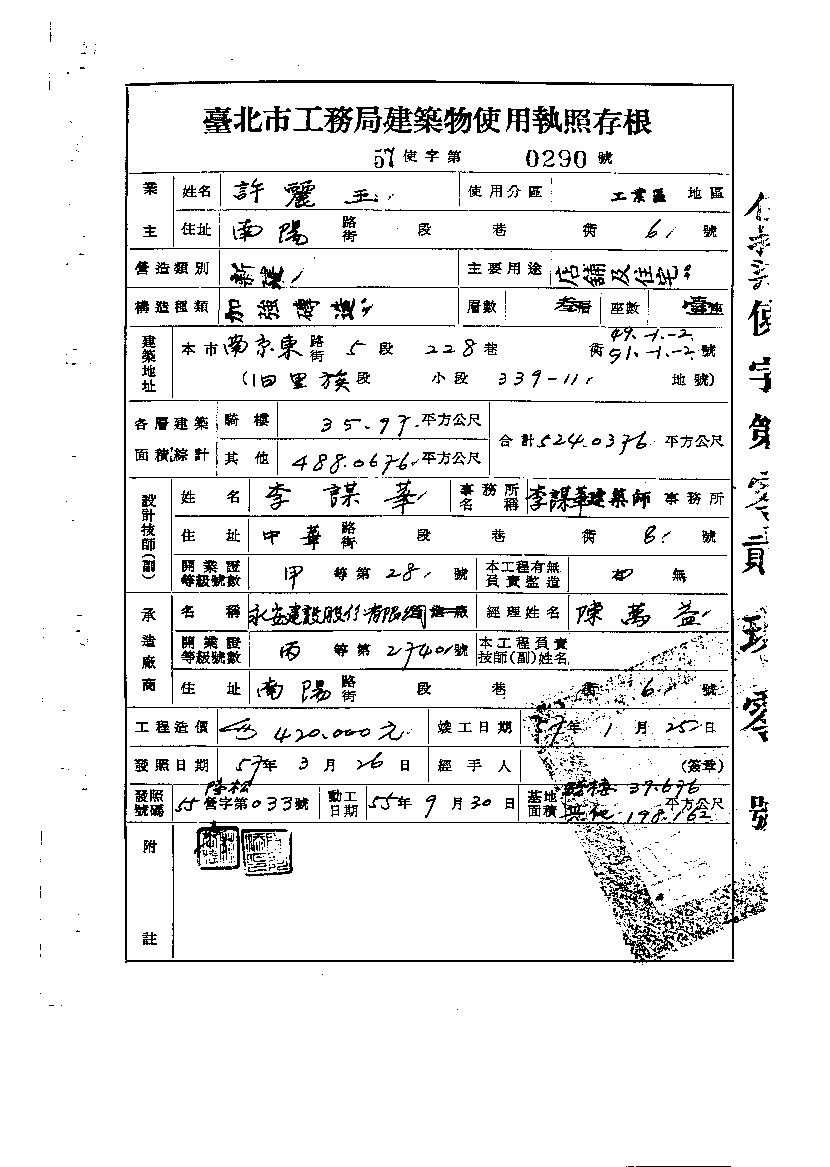 臺北市工務局建築物使用執照存根
57使字第 0290 號
業主 姓名 許麗玉 使用分區 工業區 地區
住址 南陽 路街 段 巷 衖 6 號
營造類別 新建 主要用途 店舖及住宅
構造種類 加強磚造 層數 叁層 座數 壹座
建築地址 本市南京東 路街 5段 228巷 衖 49.-1.-2. 51.-1.-2.號
(旧里族段 小段 339-11 地號)
各層建築面積綜計 騎樓 35.97 平方公尺 合計524.0376平方公尺
其他 488.0676 平方公尺
設計技師(副) 姓名 李謀華 事務所名稱 李謀華建築師 事務所
住址 中華 路街 段 巷 衖 8 號
開業證等級號數 甲 等第 28 號 本工程有無負責監造 無
承造廠商 名稱 永安建設股份有限公司 營造廠 經理姓名 陳萬益
開業證等級號數 丙 等第 2740號 本工程負責技師(副)姓名
住址 南陽 路街 段 巷 衖 6 號
工程造價 420.000元 竣工日期 57年 1月 25日
發照日期 57年 3月 26日 經手人 (簽章)
發照號碼 55 營字第033號 動工日期 55年 9月 30日 基地面積 騎樓 39.676 其他 198.162 平方公尺
附註
使字第零貳玖零號